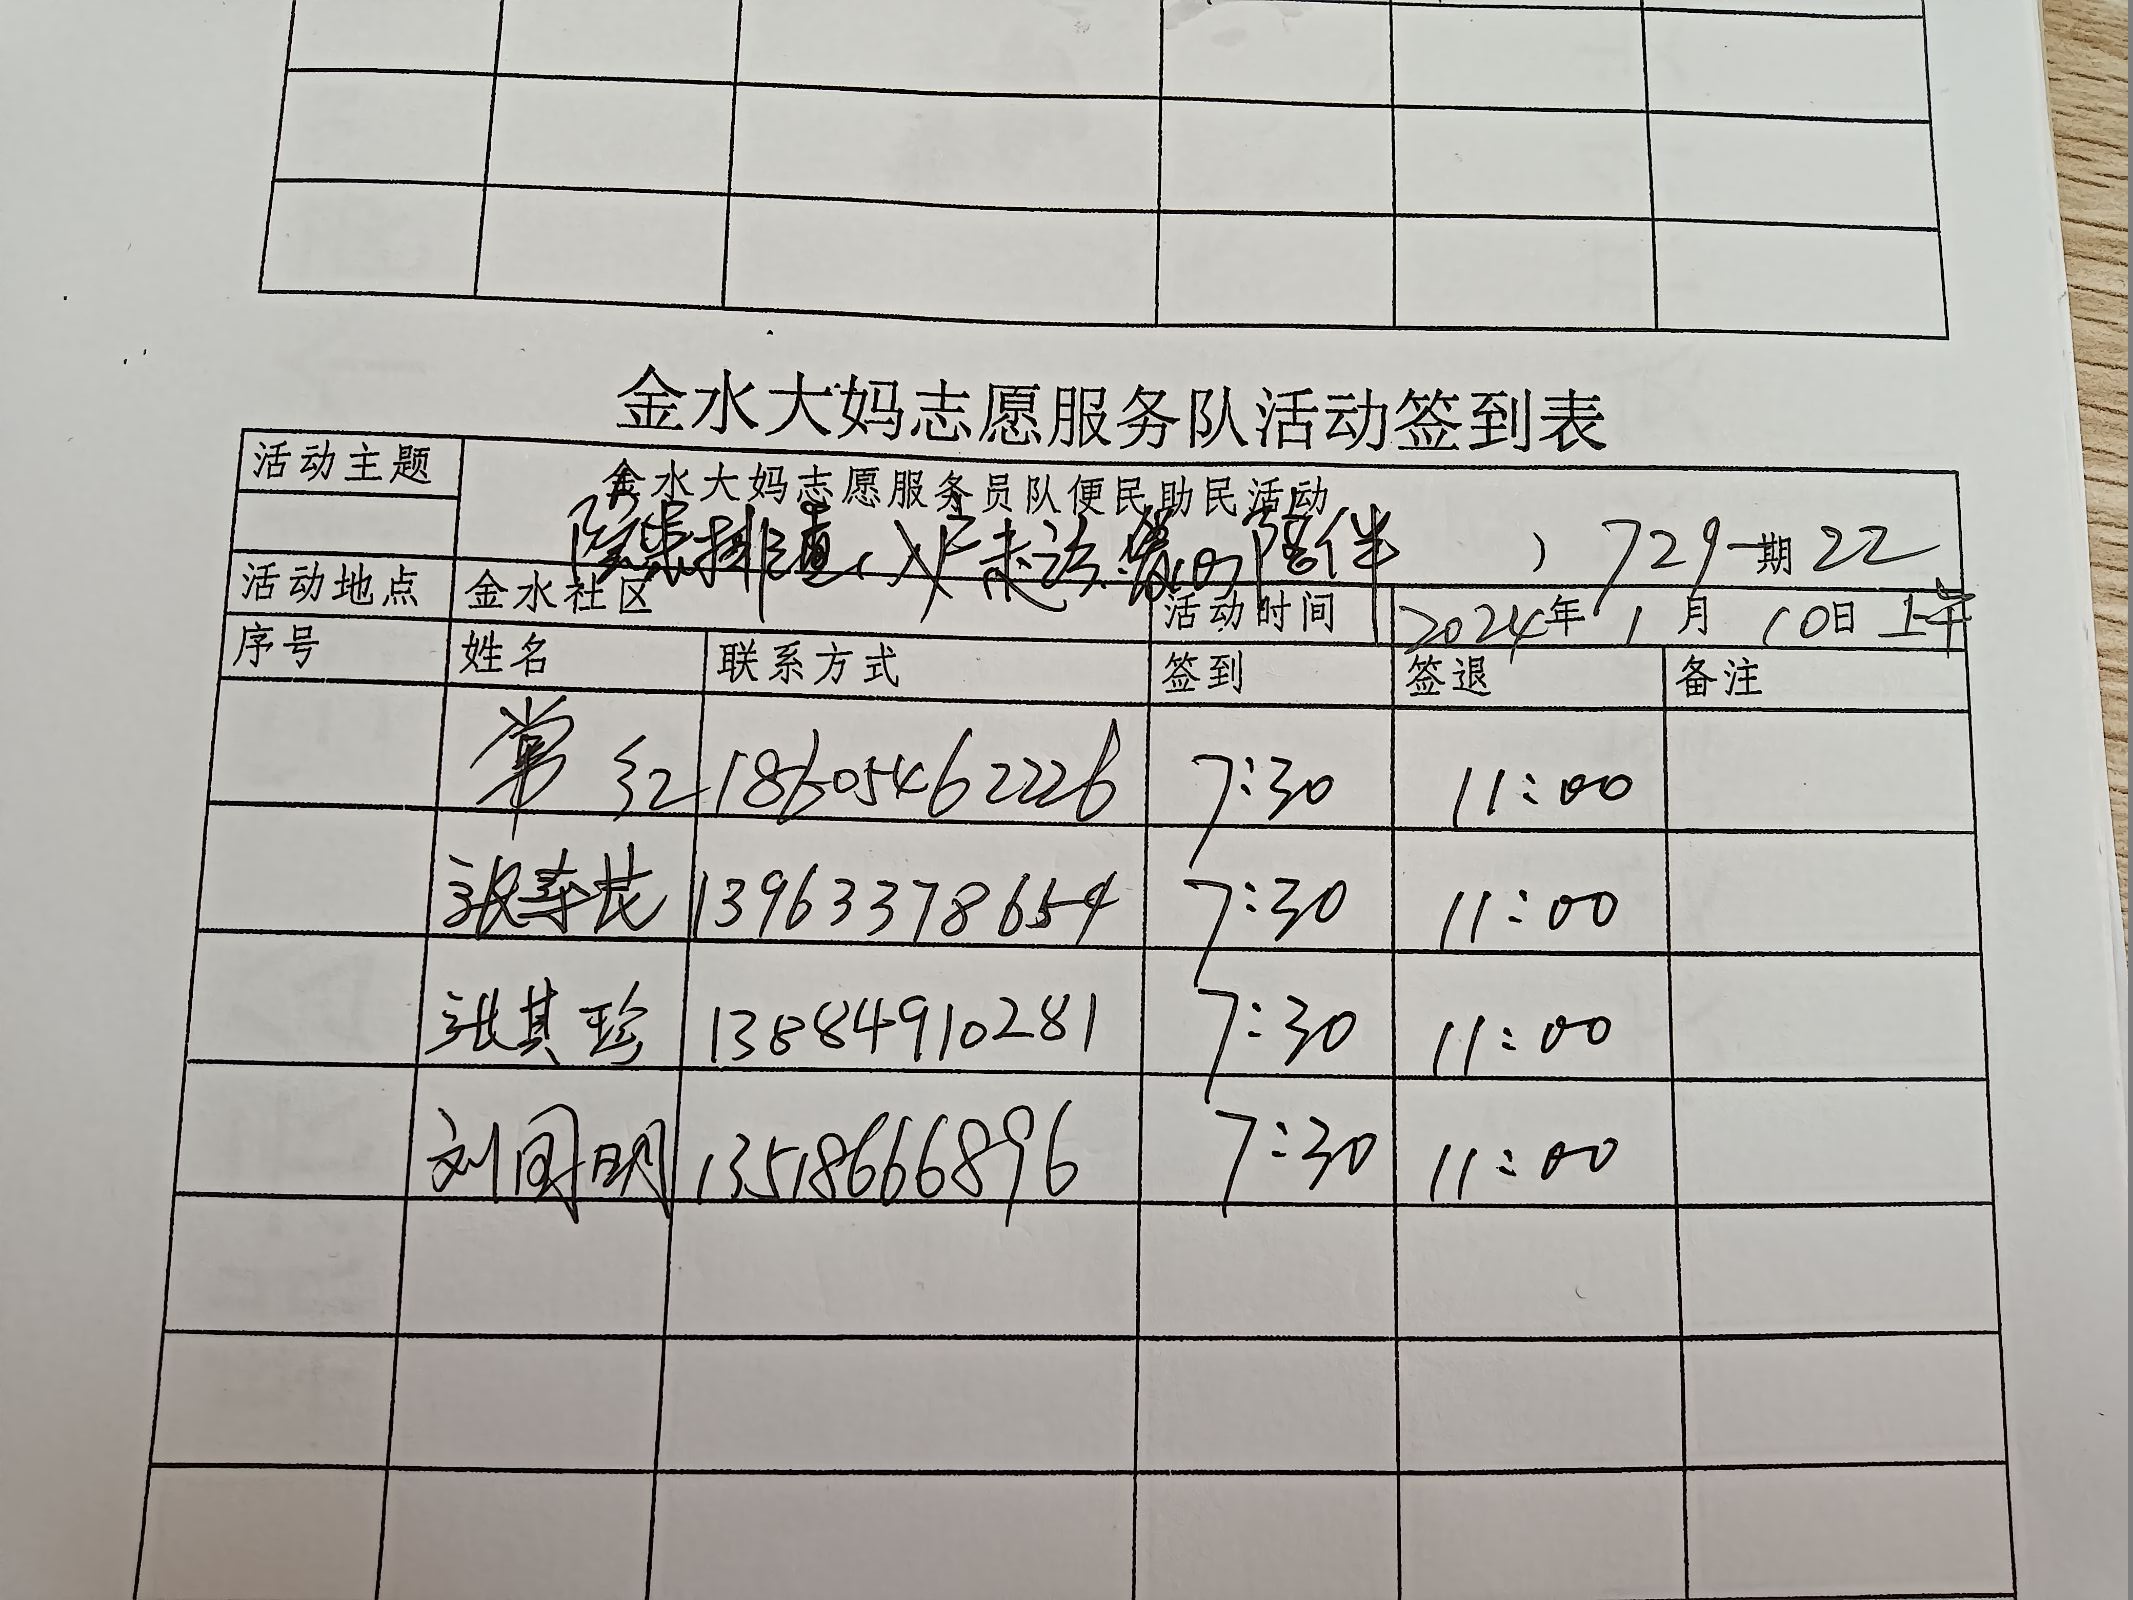 金水大妈志愿服务队活动签到表
活动主题 金水大妈志愿服务员队便民助民活动
隐患排查、入户走访 陪伴 ） 729 期 22
活动地点 金水社区 活动时间 2024年 1 月 10日 上午
序号 姓名 联系方式 签到 签退 备注
常红 18605462226 7:30 11:00
张 13963378654 7:30 11:00
张其珍 13884910281 7:30 11:00
刘国明 13518666896 7:30 11:00